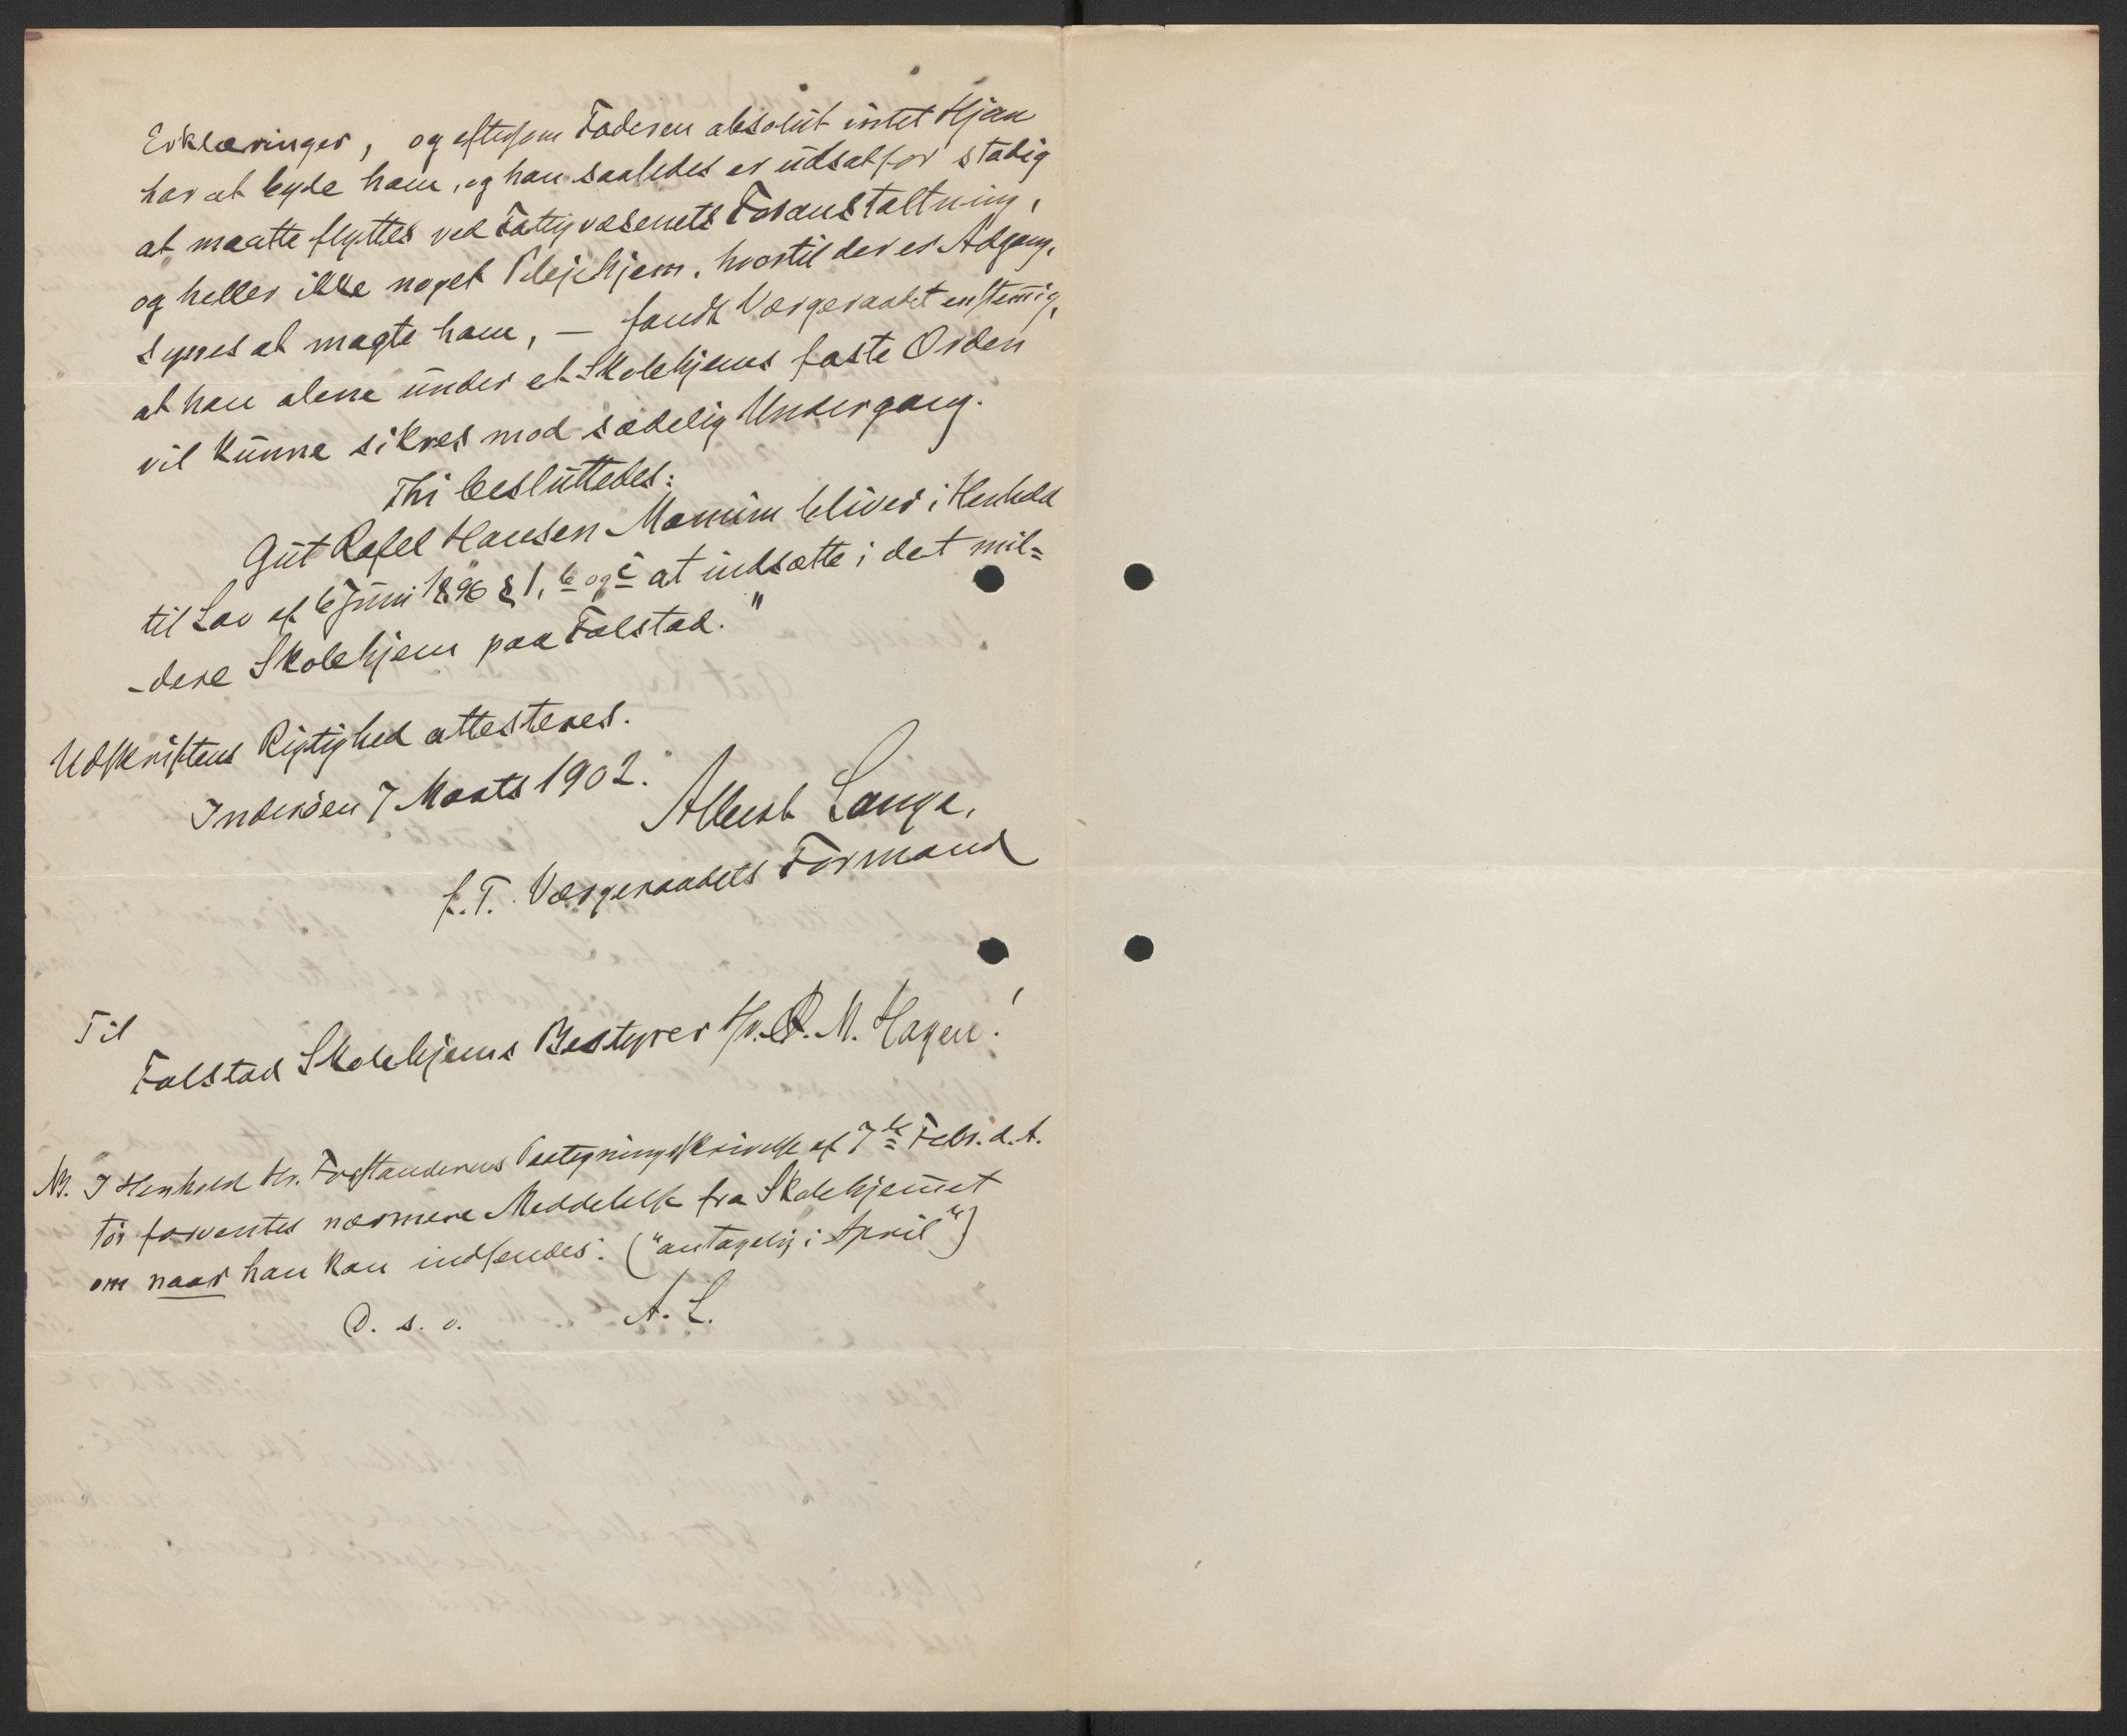 Erklæringer, og eftersom Faderen absolut intet Hjem
har at byde ham, og han saaledes er udsat for stadig
at maatte flyttes ved Fattigvæsenets Foranstaltning,
og heller ikke noget Plejehjem, hvortil der er Adgang,
synes at magte ham, — fandt Værgeraadet enstemig,
at han alene under et Skolehjems faste Orden
vil kunne sikres mod sædelig Undergang.
Thi besluttedes:
Gut Rafel Hansen Mamim bliver i Henhold
til Lov af 6 Juni 1896 § 1, b og c at indsætte i det mil=
-dere Skolehjem paa Falstad."
Udskriftens Rigtighed attesteres.
Inderöen 7 Marts 1902.
Albert Lange,
f. T. Værgeraadets Formand
Til
Falstad Skolehjems Bestyrer Hr. O. M. Hagen!
NB. I Henhold Hr. Forstanderens Paategningsskrivelse af 7de Febr. d. A.
tör forventes nærmere Meddelelse fra Skolehjemet
om naar han kan indsendes. ("antagelig i April")
D. s. o. A. L.